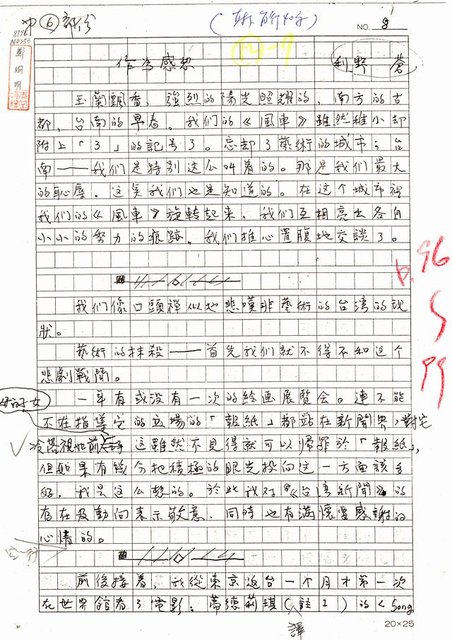 中⑥部分
(林筋 校)
NO. 8
作為感想
利野 蒼
玉蘭飄香,強烈的陽光照耀的,南方的古
都,台南的早春。我們的《風車》雖然稚小却
附上「3」的記号了。忘却了藝術的城市:台
南——我們是特別這么叫着的。那是我們最大
的恥辱,這
我們也是知道的。在這个城市裡
我們的《風車》旋轉起來,我們互相亮出各自
小小的努力的痕跡,我們推心置腹地交談了。
我們像口頭禪似地悲嘆非藝術的台湾的現
狀。
藝術的抹殺——首先我們就不得不和這个
悲劇戰鬪。
一年有或没有一次的絵画展覧会。連不能
不在指導它的立場的「報紙」都站在新聞界,對它
冷眼視
這雖然不見得就可以歸罪於「報紙」,
但如果有幾个把積極的眼光投向這一方面該多
好,我是這么想的。於此我对《台湾新聞》的
存在及動向表示敬意,同時也有滿懷感謝的
心情的。
前後接着,我從東京返台一个月才第一次
在世界館看了電影。蒂德莉琪(註1)的《Song
譯
20×25
96
5
99